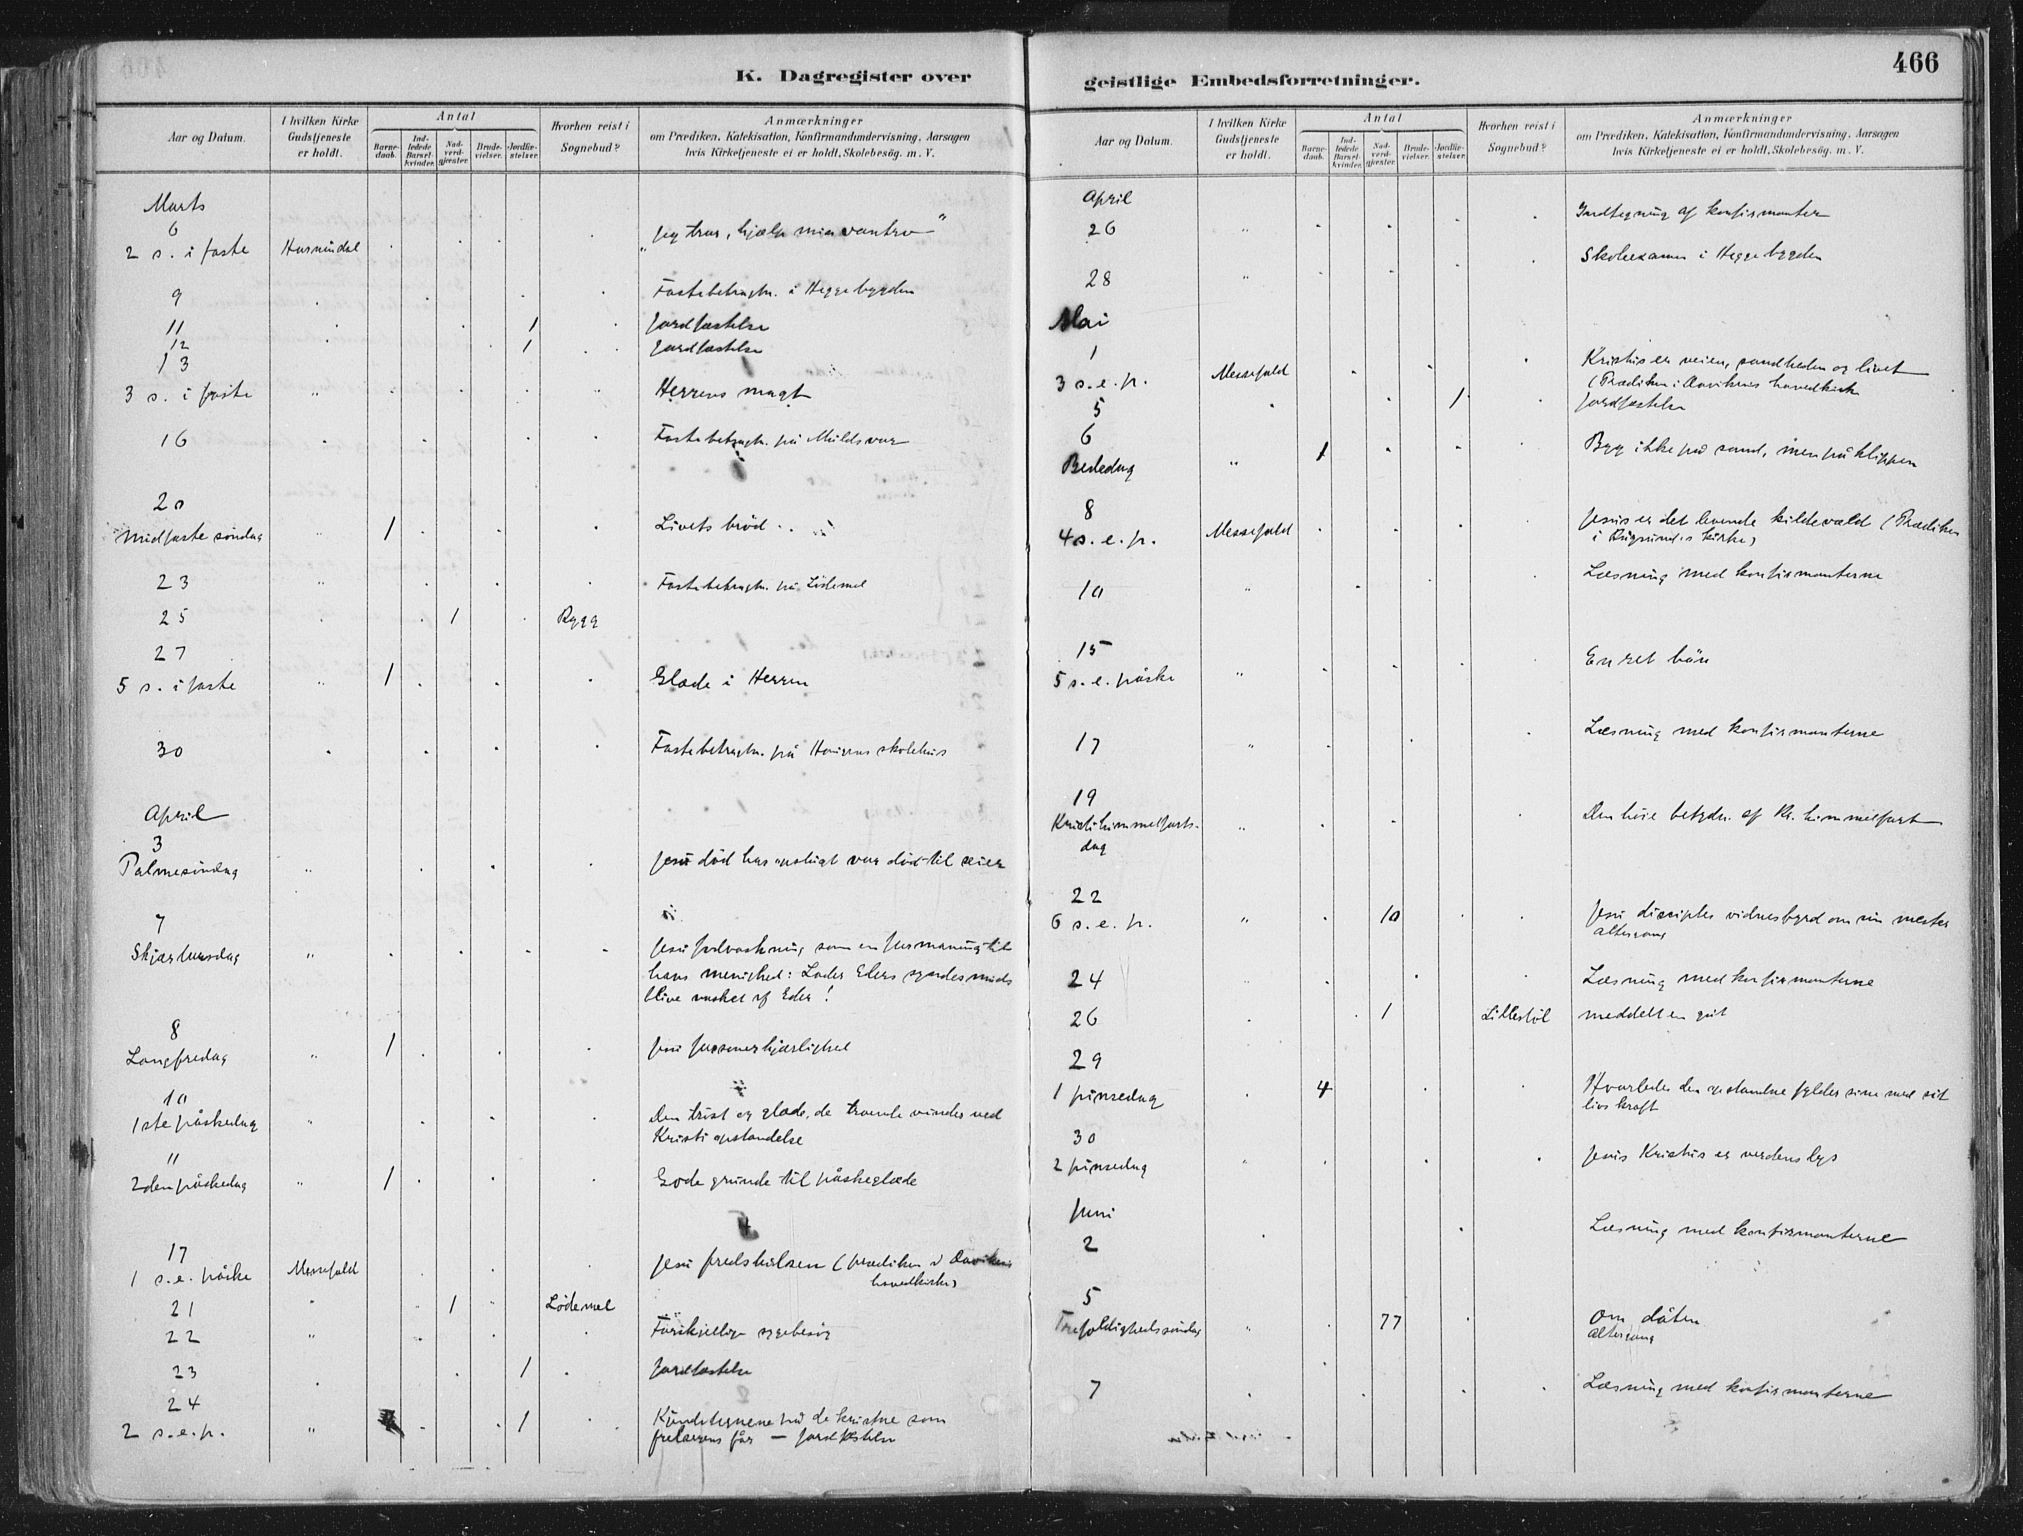 466
K. Dagregister over
geistlige Embedsforretninger.
Aar og Datum.
I hvilken Kirke Gudstjeneste er holdt.
Antal
Barnedaab.
Indledede Barselkvinder.
Nadverdgjæster.
Brudevielser.
Jordfæstelser.
Hvorhen reist i Sognebud?
Anmærkninger
om Prædiken, Katekisation, Konfirmandundervisning, Aarsagen
hvis Kirketjeneste ei er holdt, Skolebesög. m. V.
Marts
6
2 s. i faste Hornindal „Jeg tror, hjælp min vantro"
9 Fastebetragtn. i Heggebygden
11 1 Jordfæstelse
12 1 Jordfæstelse
13
3 s. i faste " Herrens magt
16 Fastebetragtn. på Muldsvor
20
Midfastesøndag " 1 Livets brød
23 " Fastebetragtn. på Lødemel
25 1 Rygg
27
5 s. i faste " 1 Glæde i Herren
30 Fastebetragtn. på skolehus
April
3
Palmesøndag " Jesu død har vor død til seier
7
Skjærtorsdag " Jesu fodvaskning som en formaning til
hans menighed: Lader Eders syndesmuds
blive vasket af Eder!
8
Langfredag " 1 Jesu forsonerkjærlighed
10
1ste påskedag " Den trøst og glæde, de troende vinder ved
Kristi opstandelse
11
2den påskedag " 1 Gode grunde til påskeglæde
17
1 s. e. påske Messefald Jesu fredshilsen (prædiken i Davikens
hovedkirke)
21 " 1 Lødemel
22 " Forskjellige sygebesøg
23 1 Jordfæstelse
24
2 s. e. p. " 1 Kjendetegnene på de kristne som
frelserens får — jordfæstelse
Aar og Datum.
I hvilken Kirke Gudstjeneste er holdt.
Antal
Barnedaab.
Indledede Barselkvinder.
Nadverdgjæster.
Brudevielser.
Jordfæstelser.
Hvorhen reist i Sognebud?
Anmærkninger
om Prædiken, Katekisation, Konfirmandundervisning, Aarsagen
hvis Kirketjeneste ei er holdt, Skolebesög. m. V.
April
26 " Indtegning af konfirmanter
28 " Skoleexamen i Heggebygden
Mai
1
3 s. e. p. Messefald Kristus er veien, sandheden og livet
(Prædiken i Davikens hovedkirk
5 1 Jordfæstelse
6
Bededag " 1 Byg ikke på sand, men på klippen
8
4 s. e. p. Messefald Jesus er det levende kildevæld (Prædiken
i Rugsunds kirke)
10 " Læsning med konfirmanterne
15
5 s. e. påske " En ret bön
17 " Læsning med konfirmanterne
19
Kristi himmelfarts-
dag " Den høie betydn. af Kr. himmelfart
22
6 s. e. p. " 10 Jesu disciples vidnesbyrd om sin mester
altergang
24 " Læsning med konfirmanterne
26 1 Lillestøl meddelt en gut
29
1 pinsedag 4 Hvorledes den opstandne fylder sine med sit
livs kraft
30
2 pinsedag " Jesus Kristus er verdens lys
Juni
2 Læsning med konfirmanterne
5
Trefoldighedssøndag " 77 Om dåben
altergang
7 Læsning med konfirmanterne